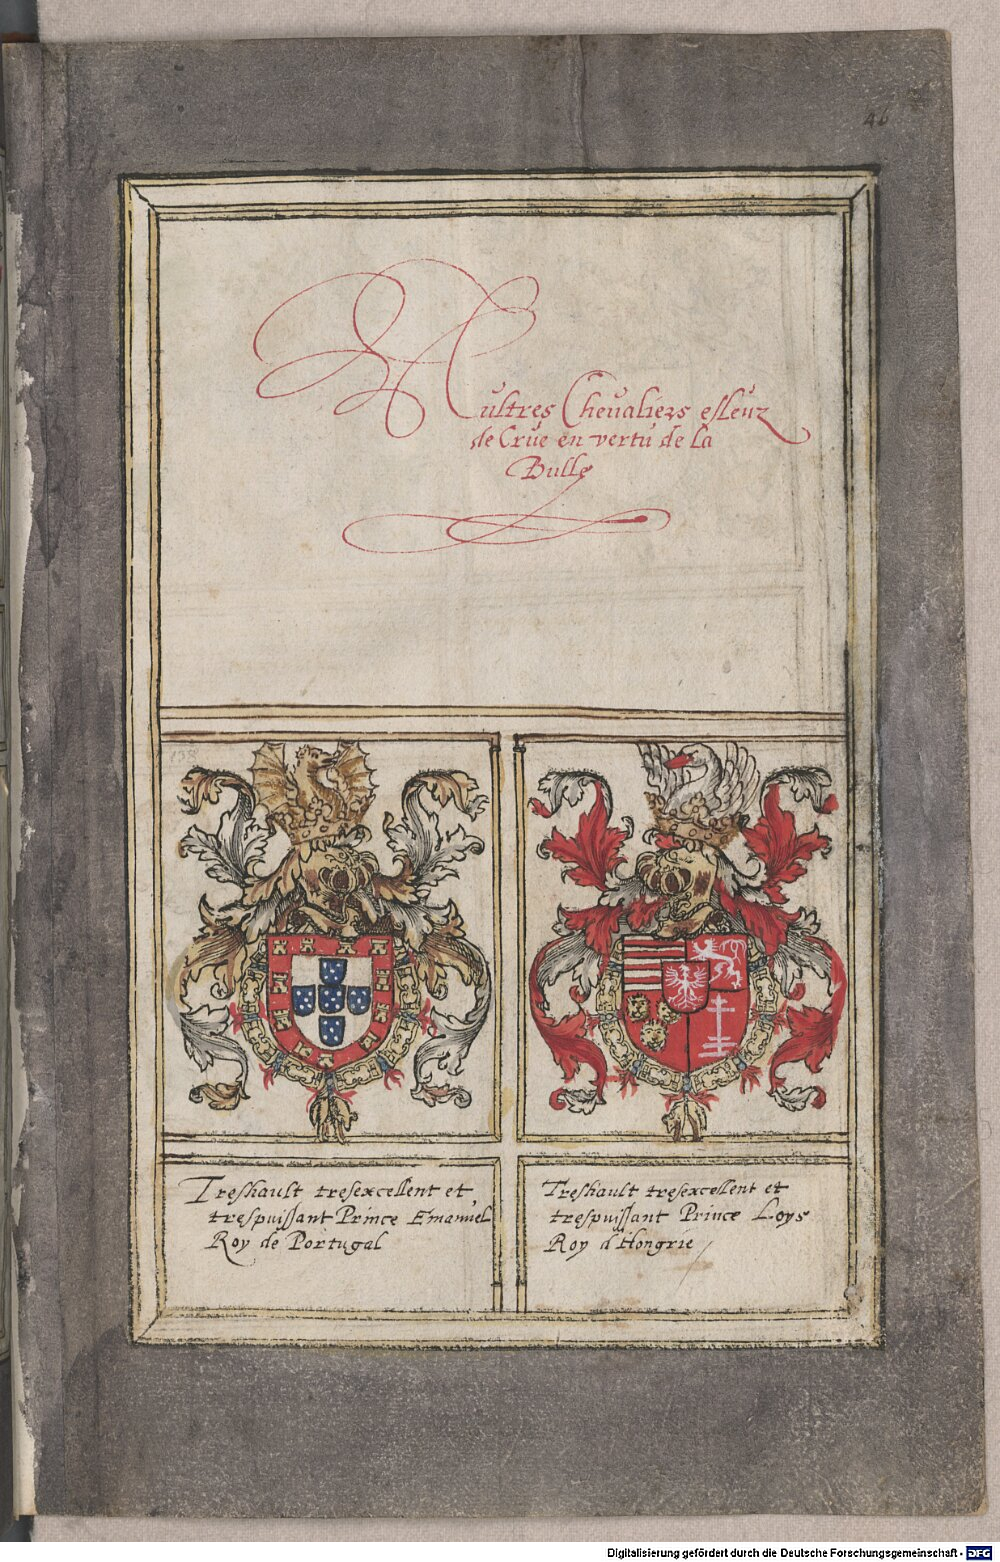 46
Aultres Chevaliers esleuz
de Crüe en vertu de la
Bulle
Treshault tresexcellent et
trespuissant Prince Emanuel
Roy de Portugal
Treshault tresexcellent et
trespuissant Prince Loys
Roy d'Hongrie
Digitalisierung gefördert durch die Deutsche Forschungsgemeinschaft - DFG